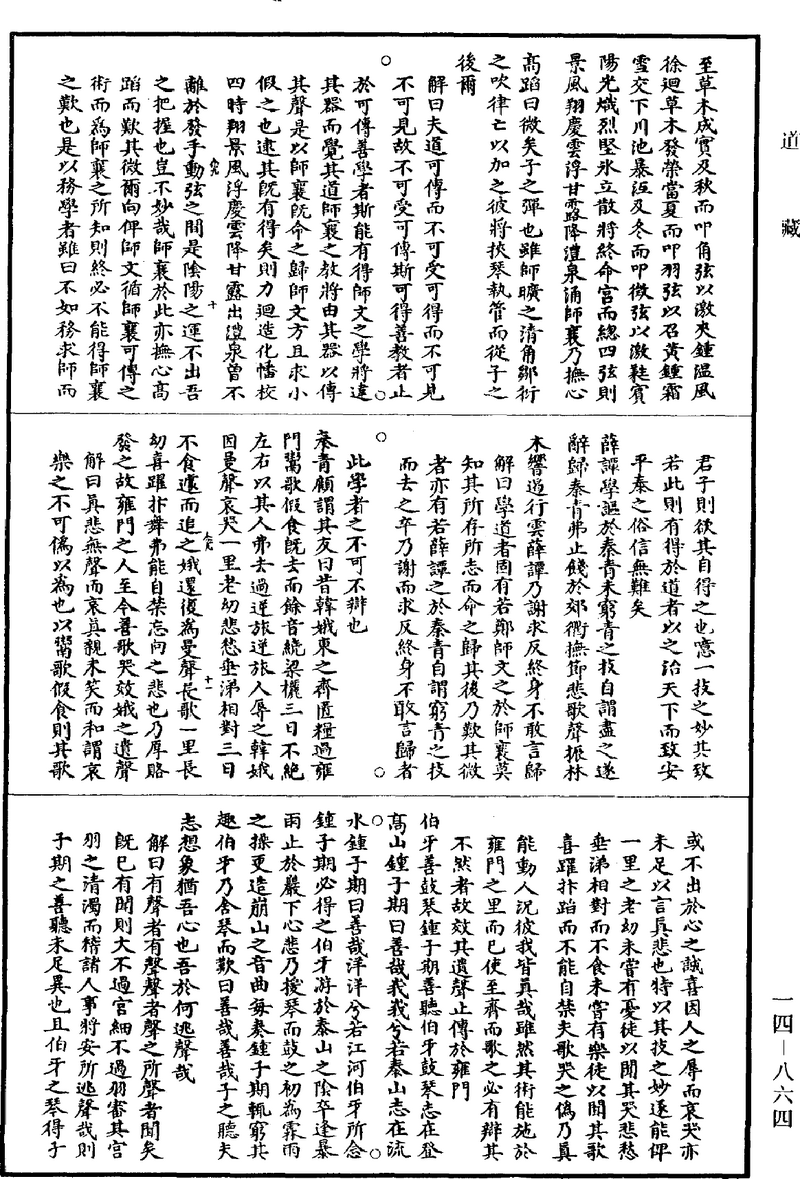 道藏
至草木成實及秋而叩角弦以激夾鍾溫風
徐迴草木發榮當夏而叩羽弦以召黃鍾霜
雪交下川池暴沍及冬而叩徵弦以激蕤賓
陽光熾烈堅氷立散將終命宮而總四弦則
景風翔慶雲浮甘露降澧泉涌師襄乃撫心
高蹈曰微矣子之彈也雖師曠之清角鄒衍
之吹律亡以加之彼將挾琴執管而從子之
後爾
解曰夫道可傳而不可受可得而不可見
不可見故不可受可傳斯可得善教者止
於可傳善學者斯能有得師文之學將違
其器而覺其道師襄之教將由其器以傳
其聲是以師襄旣命之歸師文方且求小
假之也逮其旣有得矣則力迴造化幡校
四時翔景風浮慶雲降甘露出澧泉曽不
離於發手動弦之間是陰陽之運不出吾
之把握也豈不妙哉師襄於此亦撫心高
蹈而歎其微爾向俾師文循師襄可傳之
術而爲師襄之所知則終必不能得師襄
之歎也是以務學者雖曰不如務求師而
君子則欲其自得之也噫一技之妙其致
若此則有得於道者以之治天下而致安
平泰之俗信無難矣
薛譚學謳於秦青未窮青之技自謂盡之遂
辭歸秦青弗止餞於郊衢撫節悲歌聲振林
木響遏行雲薛譚乃謝求反終身不敢言歸
解曰學道者固有若鄭師文之於師襄莫
知其所存所志而命之歸其後乃歎其微
者亦有若薛譚之於秦青自謂窮青之技
而去之卒乃謝而求反終身不敢言歸者
此學者之不可不辯也
秦青顧謂其友曰昔韓娥東之齊匱糧過雍
門鬻歌假食旣去而餘音繞梁欐三日不絶
左右以其人弗去過逆旅逆旅人辱之韓娥
因曼聲哀哭一里老幼悲愁垂涕相對三日
不食遽而追之娥還復為曼聲長歌一里長
幼喜躍抃舞弗能自禁忘向之悲也乃厚賂
發之故雍門之人至今善歌哭效娥之遺聲
解曰真悲無聲而哀真親未笑而和謂哀
樂之不可僞以為也以鬻歌假食則其歌
或不出於心之誠喜因人之辱而哀哭亦
未足以言真悲也特以其技之妙遂能俾
一里之老幼未嘗有憂徒以聞其哭悲愁
垂涕相對而不食未嘗有樂徒以聞其歌
喜躍抃蹈而不能自禁夫歌哭之僞乃真
能動人況彼我皆真哉雖然其術能施於
雍門之里而已使至齊而歌之必有辯其
不然者故效其遺聲止傳於雍門
伯牙善鼓琴鍾子期善聽伯牙鼓琴志在登
高山鍾子期曰善哉峩峩兮若泰山志在流
水鍾子期曰善哉洋洋兮若江河伯牙所念
鍾子期必得之伯牙游於泰山之陰卒逢暴
雨止於巖下心悲乃援琴而鼓之初為霖雨
之操更造崩山之音曲每奏鍾子期輒窮其
趣伯牙乃舍琴而歎曰善哉善哉子之聽夫
志想象猶吾心也吾於何逃聲哉
解曰有聲者有聲聲者聲之所聲者聞矣
旣巳有聞則大不過宮細不過羽審其宮
羽之清濁而稽諸人事將安所逃聲哉則
子期之善聽未足異也且伯牙之琴得于
一四—八六四